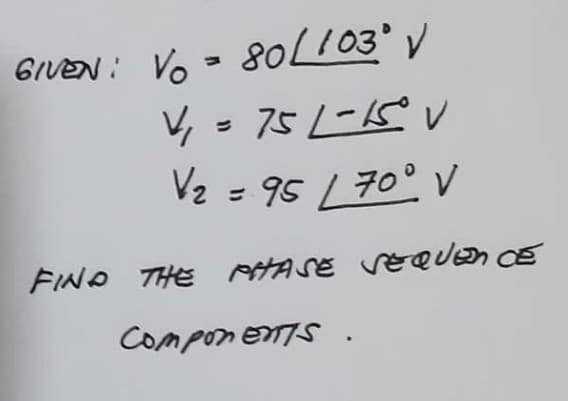 GIVEN: V0 = 80∠103° V
V1 = 75∠-15° V
V2 = 95∠70° V
FIND THE PHASE SEQUENCE
COMPONENTS.